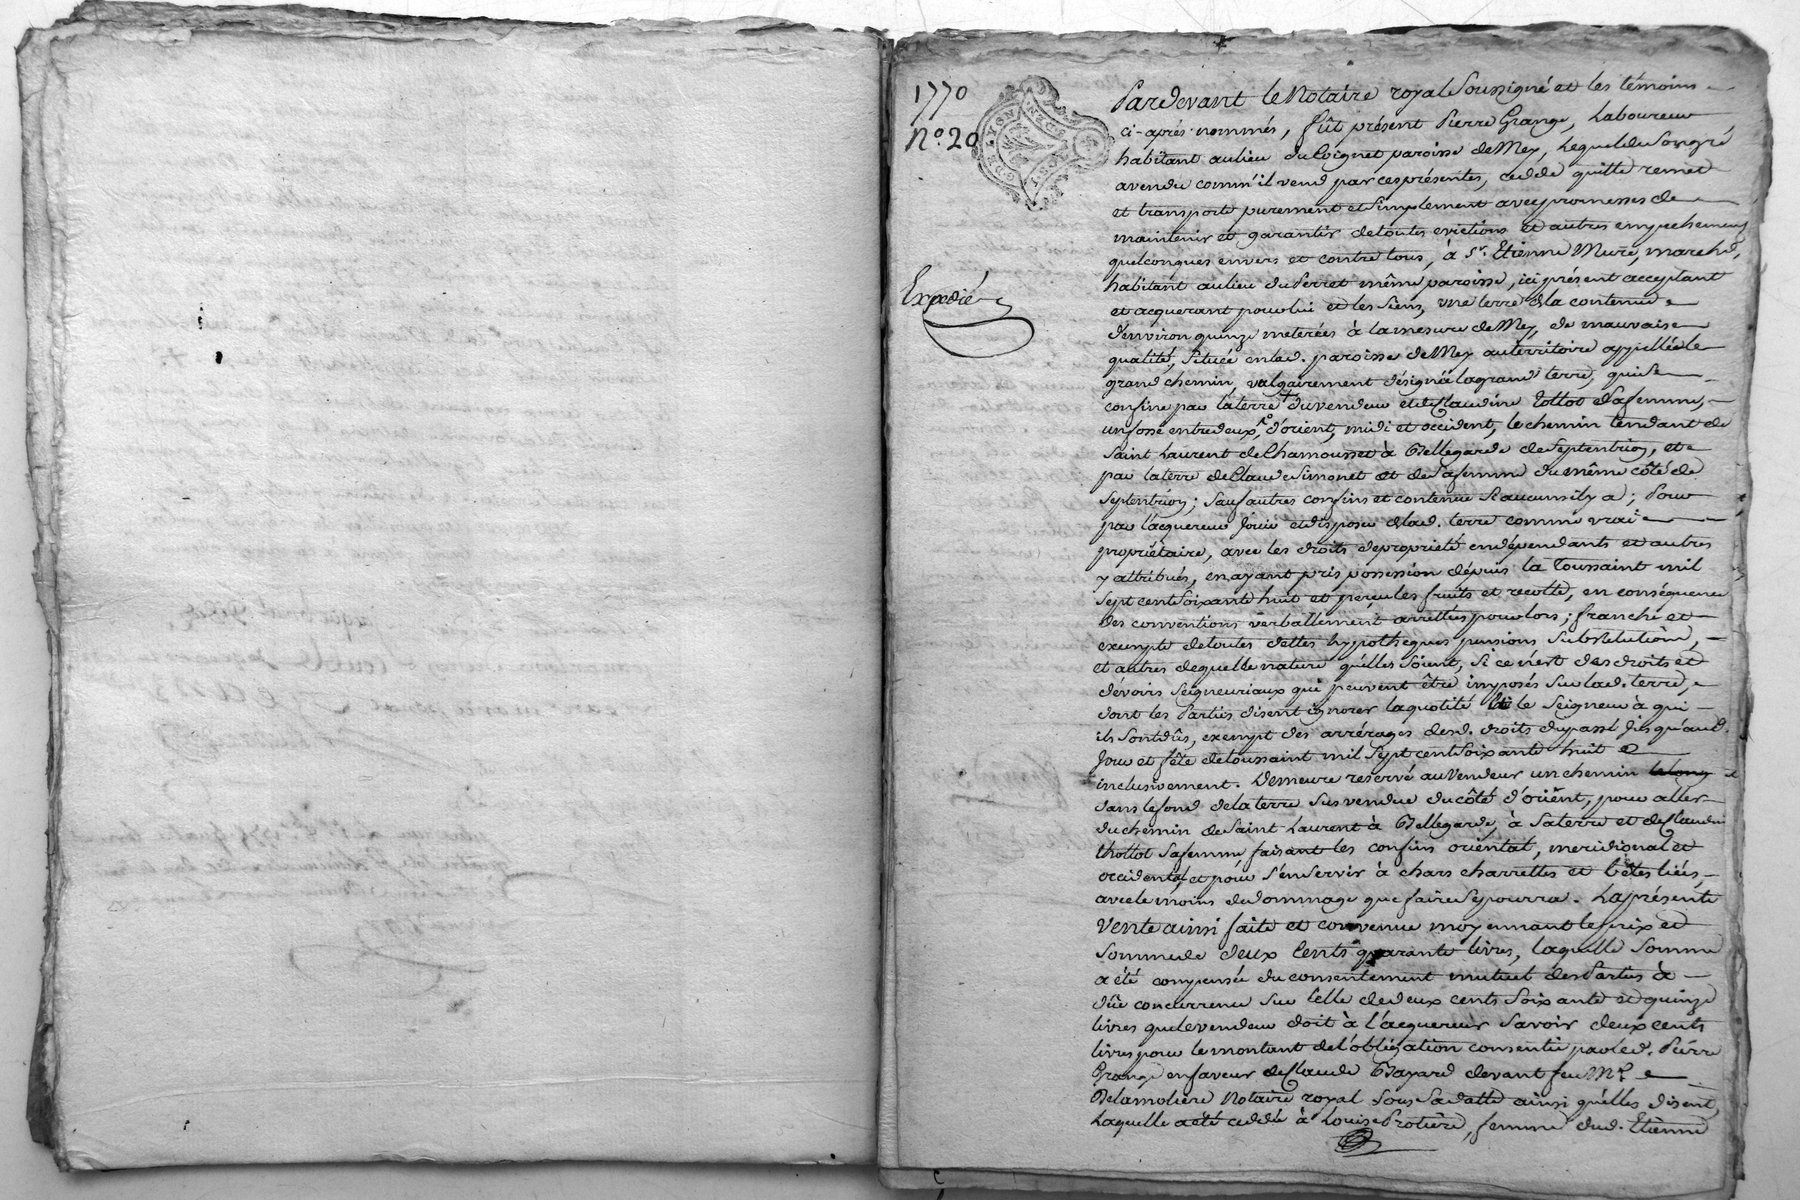 1770
N.º 20
Expedié
Pardevant le Notaire royal Soussigné et les témoins
ci-après nommés, fût présent Pierre Grange, Laboureur
habitant au lieu du Coignet paroisse de Mey, Lequel de Son gré
a vendu comm'il vend par ces présentes, cedde quitte remet
et transporte purement et Simplement avec promesses de
maintenir et garantir de toutes evictions et autres empechements
quelconques envers et contre tous, à Sr. Etienne Mure, marchd,
habitant au lieu du Perret même paroisse, ici présent acceptant
et acquerant pour lui et les Siens, une terre de la contenue
d'environ quinze meterées à la mesure de Mey, de mauvaise
qualité, Située en lad. paroisse de Mey au territoire appellée le
grand chemin, valgairement désignée la grand' terre, qui Se
confine par la terre du vendeur et de Claudine Tottot Sa femme,
un fossé entre deux, d'orient, midi et occident, le chemin tendant de
Saint Laurent de Chamousset à Bellegarde de Septentrion, et
par la terre de Claude Simonet et de Sa femme du même côté de
Septentrion; Sauf autres confins et contenue Si aucuns il y a; Pour
par l'acquereur Jouir et disposer de lad. terre comme vrai
propriétaire, avec les droits de propriété en dépendants et autres
y attribués, en ayant pris possession dépuis la Toussaint mil
Sept cent Soixante huit et perçu les fruits et recolte, en conséquence
des conventions verballement arrettées pour lors; franche et
exempte de toutes dettes hypotheques pensions Substitutions,
et autres de quelle nature qu'elles Soient, Si ce n'est des droits et
dévoirs Seigneuriaux qui peuvent être imposés Sur lad. terre,
dont les Parties disent ignorer la quotité et le Seigneur à qui
ils Sont dûs, exempt des arrérages desd. droits du passé Jusqu'aud.
Jour et fête de toussaint mil Sept cent Soixante huit
inclusivement. Demeure reservé au Vendeur un chemin le long
dans le fond de la terre Sus vendue du côté d'orient, pour aller
du chemin de Saint Laurent à Bellegarde, à Sa terre et de Claudine
thottot Sa femme, faisant les confins oriental, meridional et
occidental, et pour S'en Servir à chars charrettes et bêtes liées,
avec le moins de dommage que faire Se pourra. La présente
Vente ainsi faite et convenue moyennant le prix et
Somme de deux Cents quarante livres, laquelle Somme
a été compensée du consentement mutuel des Parties à
dûe concurrence Sur Celle de deux cents Soixante et quinze
livres que le vendeur doit à l'acquereur Savoir deux cents
livres pour le montant de l'obligation consentie par led. Pierre
Grange en faveur de Claude Bayard devant feu Me.
Delamoliere Notaire royal Sous Sa datte ainsi qu'elles disent,
Laquelle a été ceddée à Louise Protière, femme dud. Etienne